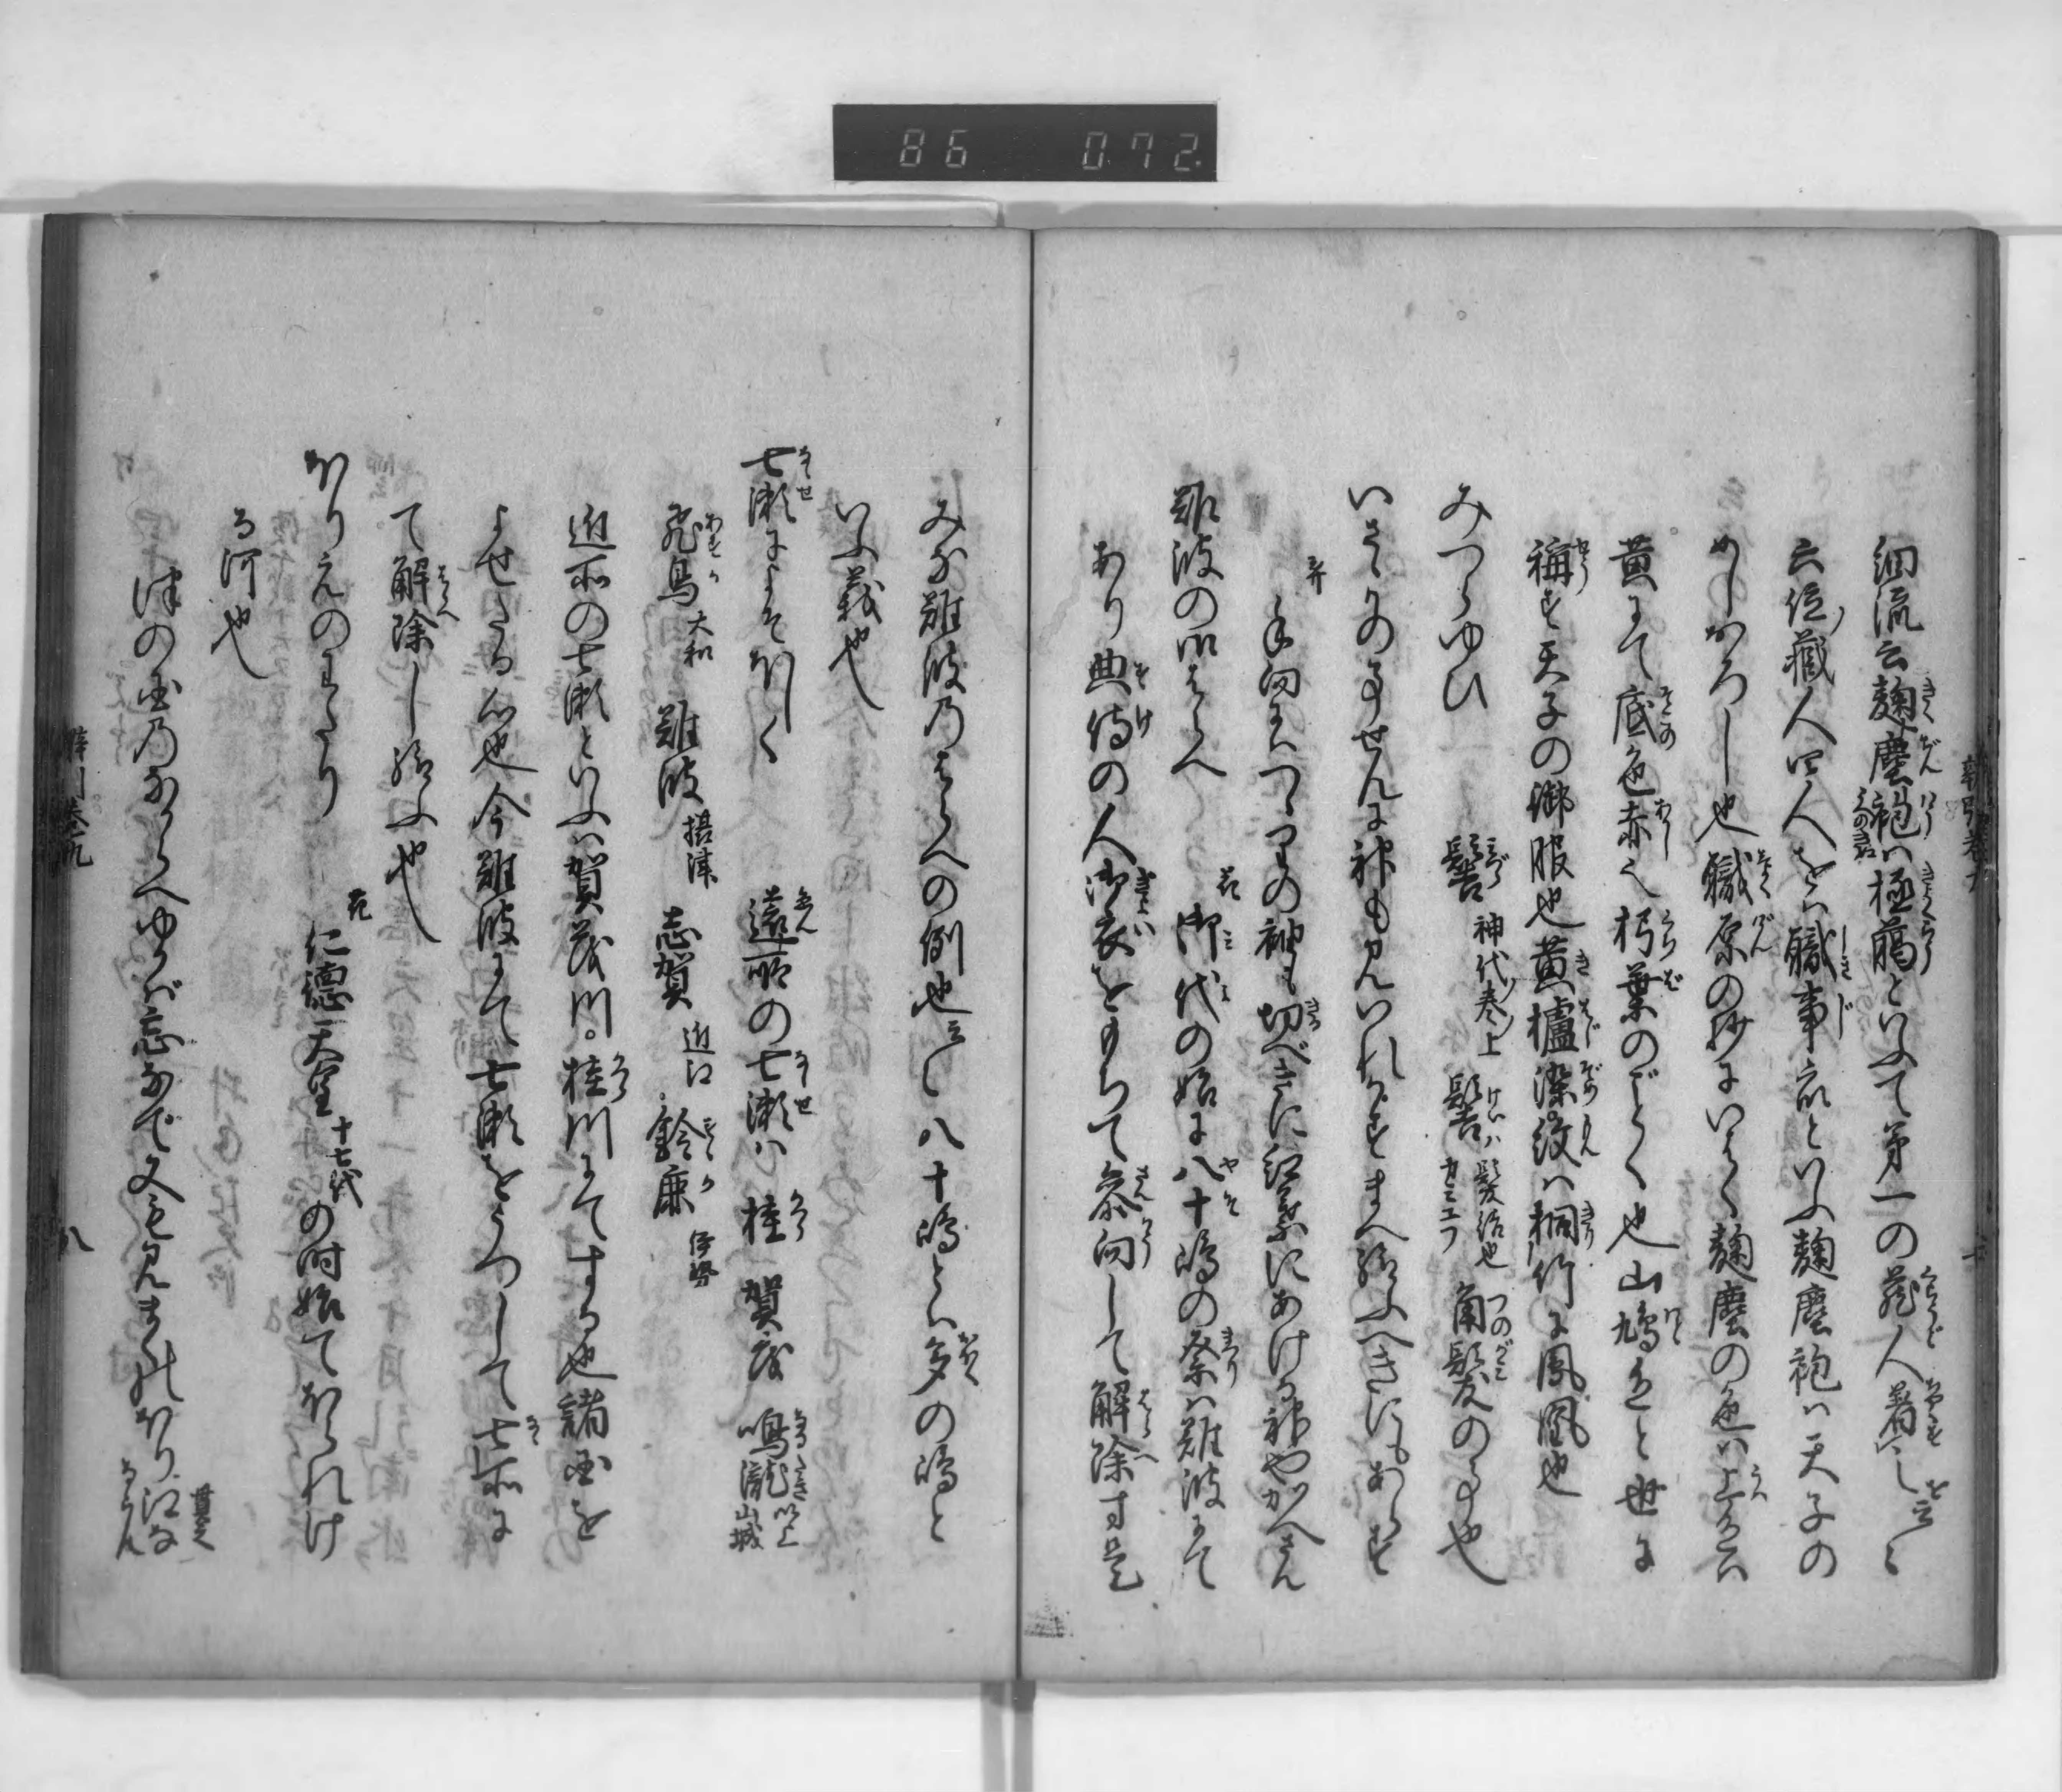 86 072
細流云麹塵袍ハ極﨟といふて第一の蔵人着し云〻
六位ノ蔵人四人をハ職事方といふ麹塵袍ハ天子の
めしおろし也職原の抄にいはく麹塵の色ハ上ハ
黄にて底色赤し朽葉のごとく也山鳩色と世に
稱す天子の御服也黄櫨染紋ハ桐竹に鳳凰也
みつらゆひ 鬟 神代巻ノ上 髻 髪結也 角髪の事也
いさゝかの事せんに神も見いれかすまへ給ふへきにもあらす
手向にハつゝりの袖も切べきに紅葉にあける神やかへさん
難波の御はらへ 御代の始に八十嶋の祭ハ難波にて
あり典侍の人御衣をもちて参向して解除す是
みな難波乃はらへの例也云〻八十嶋とハ多の嶋と
いふ義也
七瀬によそほしく 遠所の七瀬ハ 桂 賀茂 鳴瀧 以上山城
飛鳥 大和 難波 摂津 志賀 近江 鈴鹿 伊勢
近所の七瀬といふハ賀茂川。桂川にてする也諸国を
よせたる心也今難波にて七瀬をうつして七所に
て解除し給ふ也
ほりえのわたり 仁徳天皇 十七代 の時始てほられけ
る河也
津の国乃なからへゆかば忘なで又も見まくほり江な
るらん 貫之
八